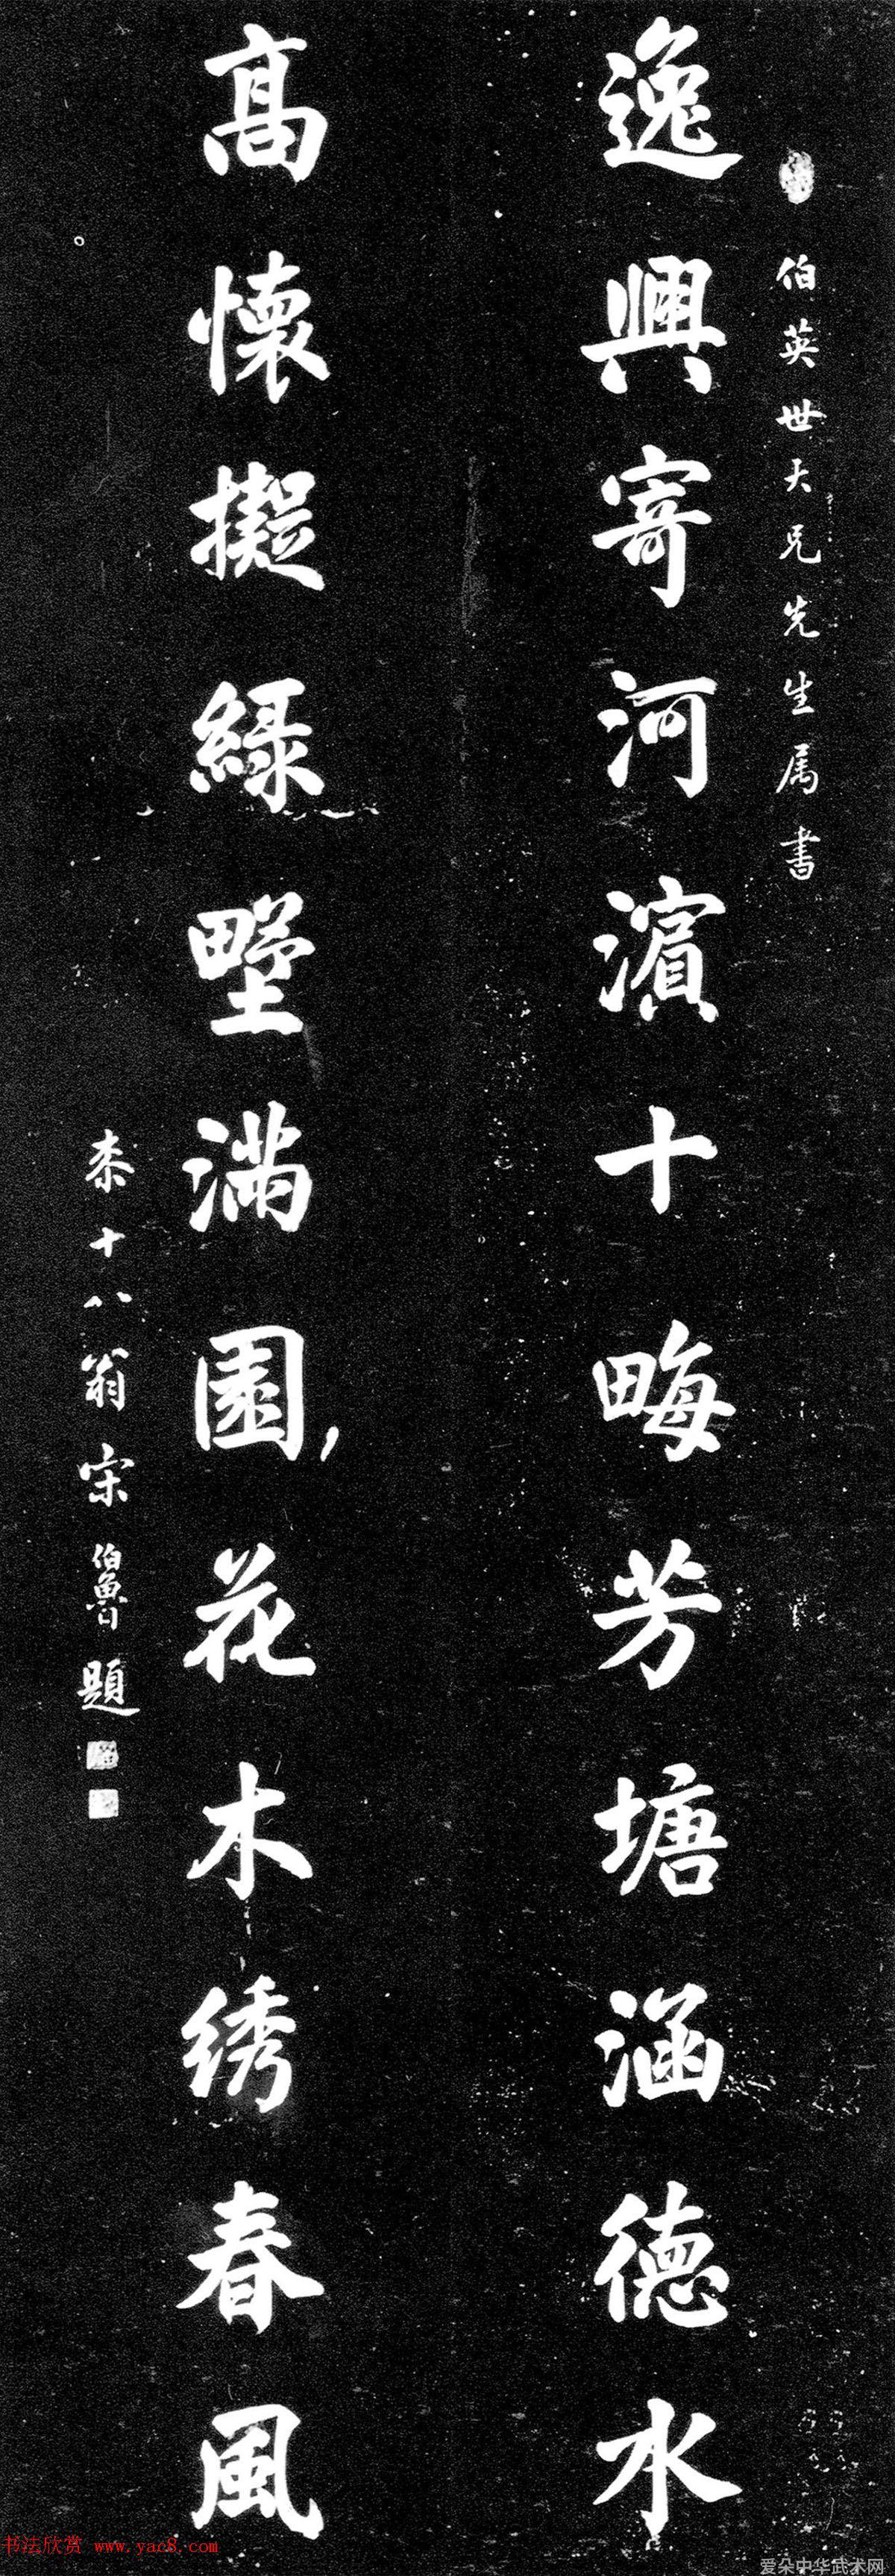 伯英世大兄先生属书
逸興寄河濱十畮芳塘涵德水
高懷擬緑墅满園花木绣春風
柒十八翁宋伯魯題
书法欣赏 www.yac8.com
爱朵中华武术网